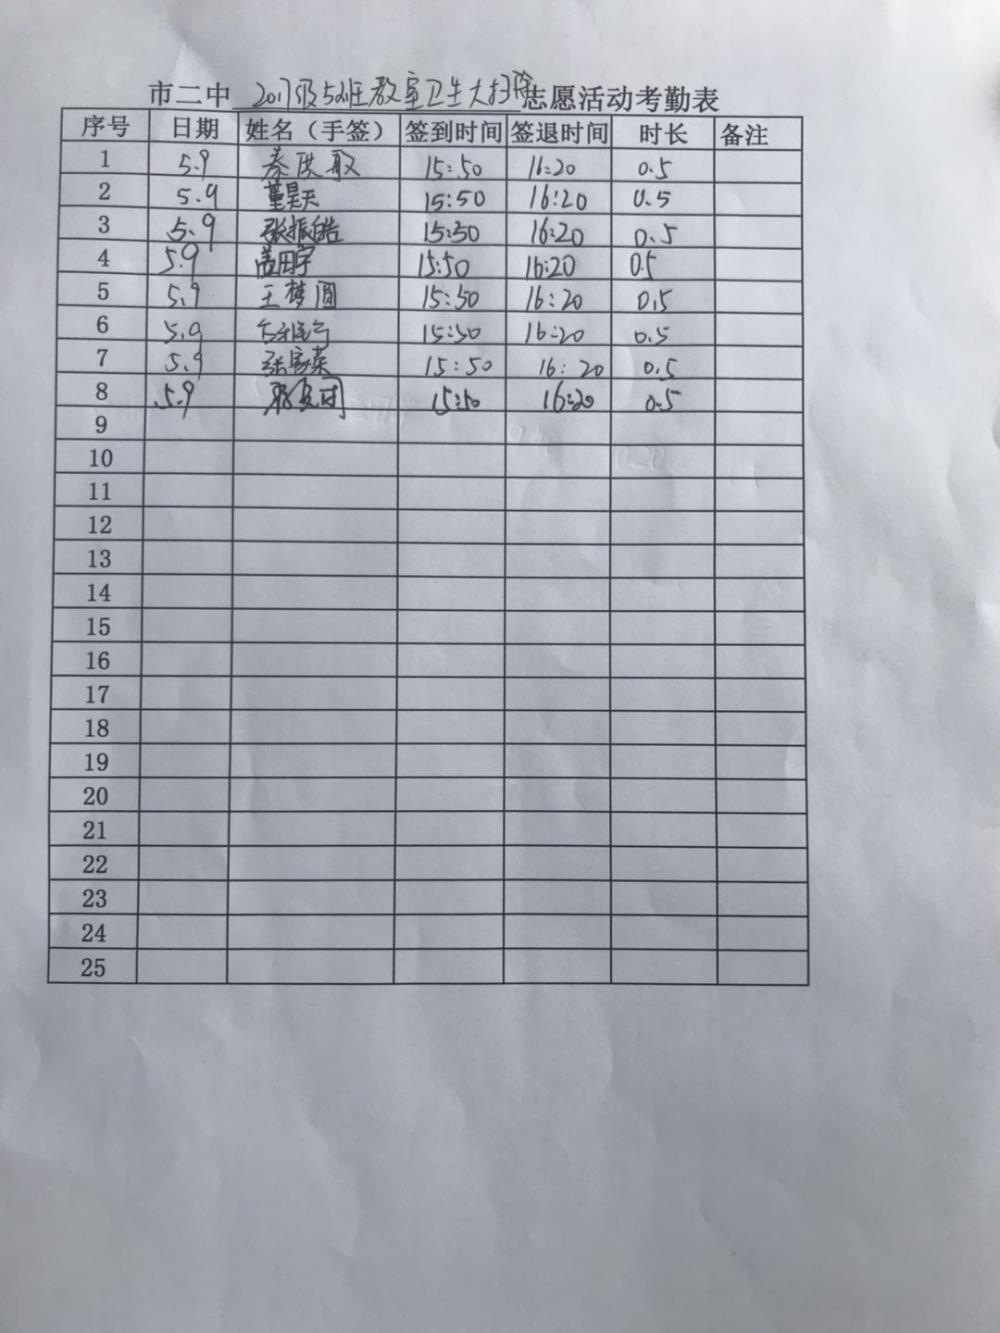 市二中 2017级5班教室卫生大扫除志愿活动考勤表
序号 日期 姓名（手签） 签到时间 签退时间 时长 备注
1 5.9 15:50 16:20 0.5
2 5.9 董昊天 15:50 16:20 0.5
3 5.9 张振皓 15:50 16:20 0.5
4 5.9 15:50 16:20 0.5
5 5.9 王梦圆 15:50 16:20 0.5
6 5.9 15:50 16:20 0.5
7 5.9 张家荣 15:50 16:20 0.5
8 5.9 15:50 16:20 0.5
9
10
11
12
13
14
15
16
17
18
19
20
21
22
23
24
25